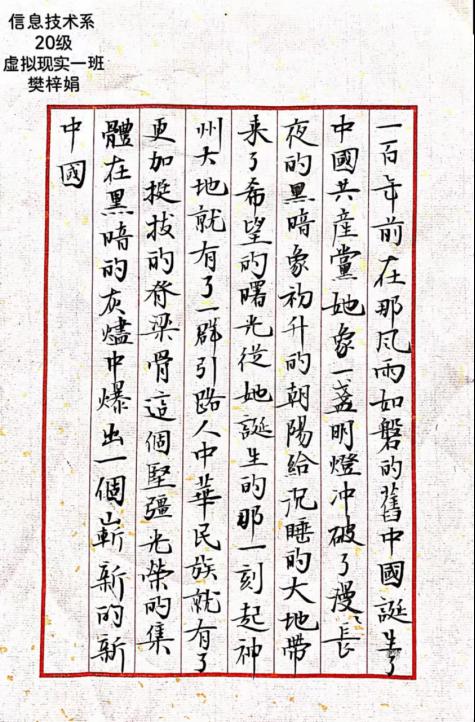 信息技术系
20级
虚拟现实一班
樊梓娟
一百年前在那风雨如磐的舊中國誕生了
中國共産黨她象一盞明燈冲破了漫漫長
夜的黑暗象初升的朝陽給沉睡的大地帶
来了希望的曙光從她誕生的那一刻起神
州大地就有了一群引路人中華民族就有了
更加挺拔的脊梁骨這個堅疆光榮的集
體在黑暗的灰燼中爆出一個嶄新的新
中國